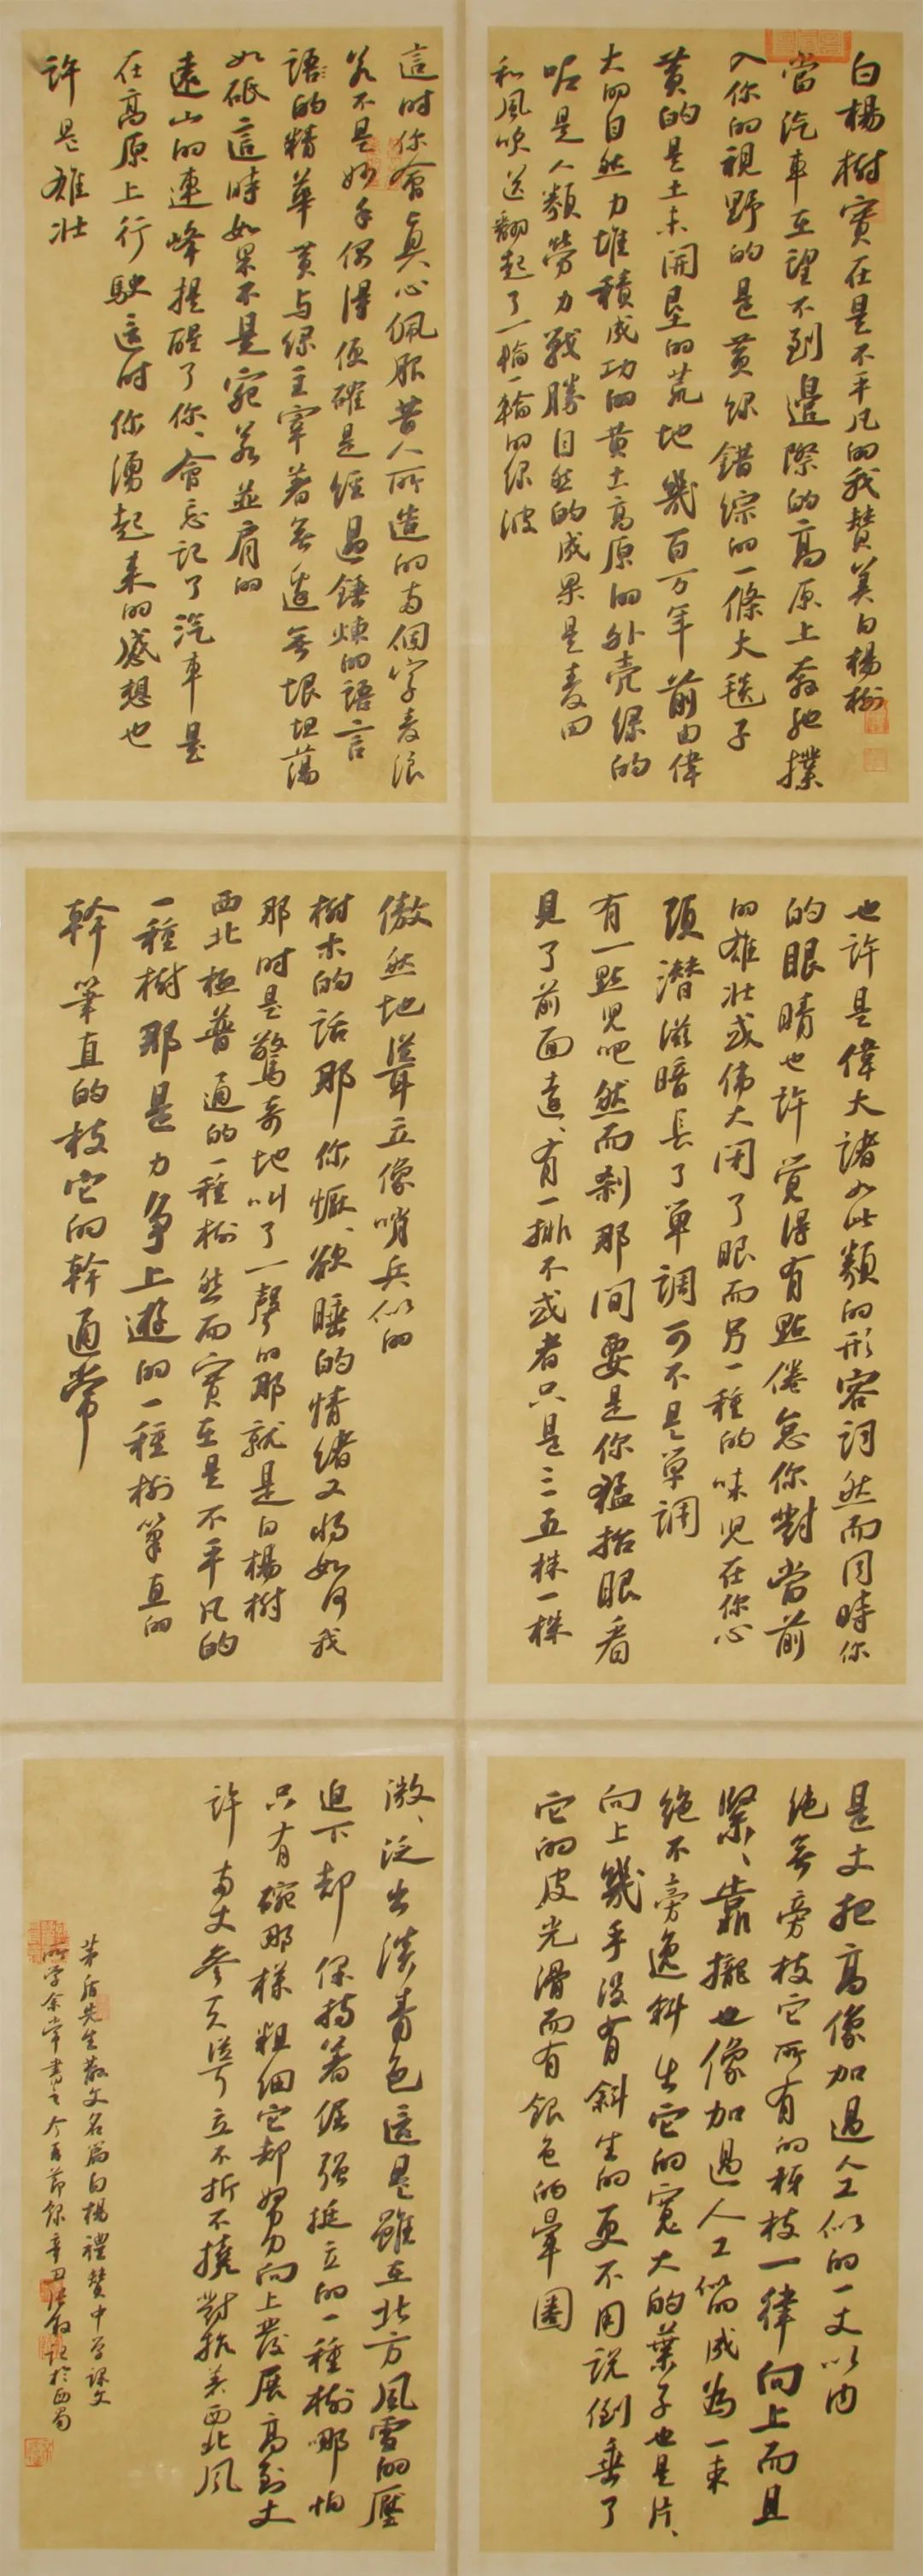 白楊樹實在是不平凡的我贊美白楊樹
當汽車在望不到邊際的高原上奔馳撲
入你的視野的是黃綠錯綜的一條大毯子
黃的是土未開墾的荒地幾百万年前由偉
大的自然力堆積成功的黄土高原的外壳綠的
呢是人類勞力戰勝自然的成果是麦田
和風吹送翻起了一輪一輪的綠波
這时你會真心佩服昔人所造的两個字麦浪
若不是妙手偶得便確是經過錘煉的語言
語的精華黄与綠主宰著無邊無垠坦蕩
如砥這時如果不是宛若並肩的
遠山的連峰提醒了你、會忘記了汽車是
在高原上行駛這时你湧起来的感想也
許是雄壯
也許是偉大諸如此類的形容詞然而同時你
的眼睛也許覚得有點倦怠你對當前
的雄壯或伟大闭了眼而另一種的味児在你心
頭潜滋暗長了單調可不是單調
有一點児吧然而刹那间要是你猛抬眼看
見了前面遠、有一排不或者只是三五株一株
傲然地聳立像哨兵似的
樹木的話那你懨、欲睡的情緒又將如何我
那时是驚奇地叫了一聲的那就是白楊樹
西北極普通的一種樹然而實在是不平凡的
一種樹那是力争上遊的一種樹筆直的
幹筆直的枝它的幹通常
是丈把高像加過人工似的一丈以内
绝無旁枝它所有的椏枝一律向上而且
緊、靠攏也像加過人工似的成為一束
绝不旁逸斜出它的寬大的葉子也是片、
向上幾乎没有斜生的更不用説倒垂了
它的皮光滑而有銀色的暈圈
微、泛出淡青色這是雖在北方風雪的壓
迫下却保持着倔强挺立的一種樹哪怕
只有碗那様粗细它却努力向上發展高到丈
許两丈参天聳立不折不撓對抗着西北風
茅盾先生散文名篇白楊禮贊中学課文
所学余常書之今再節錄辛丑
於西蜀